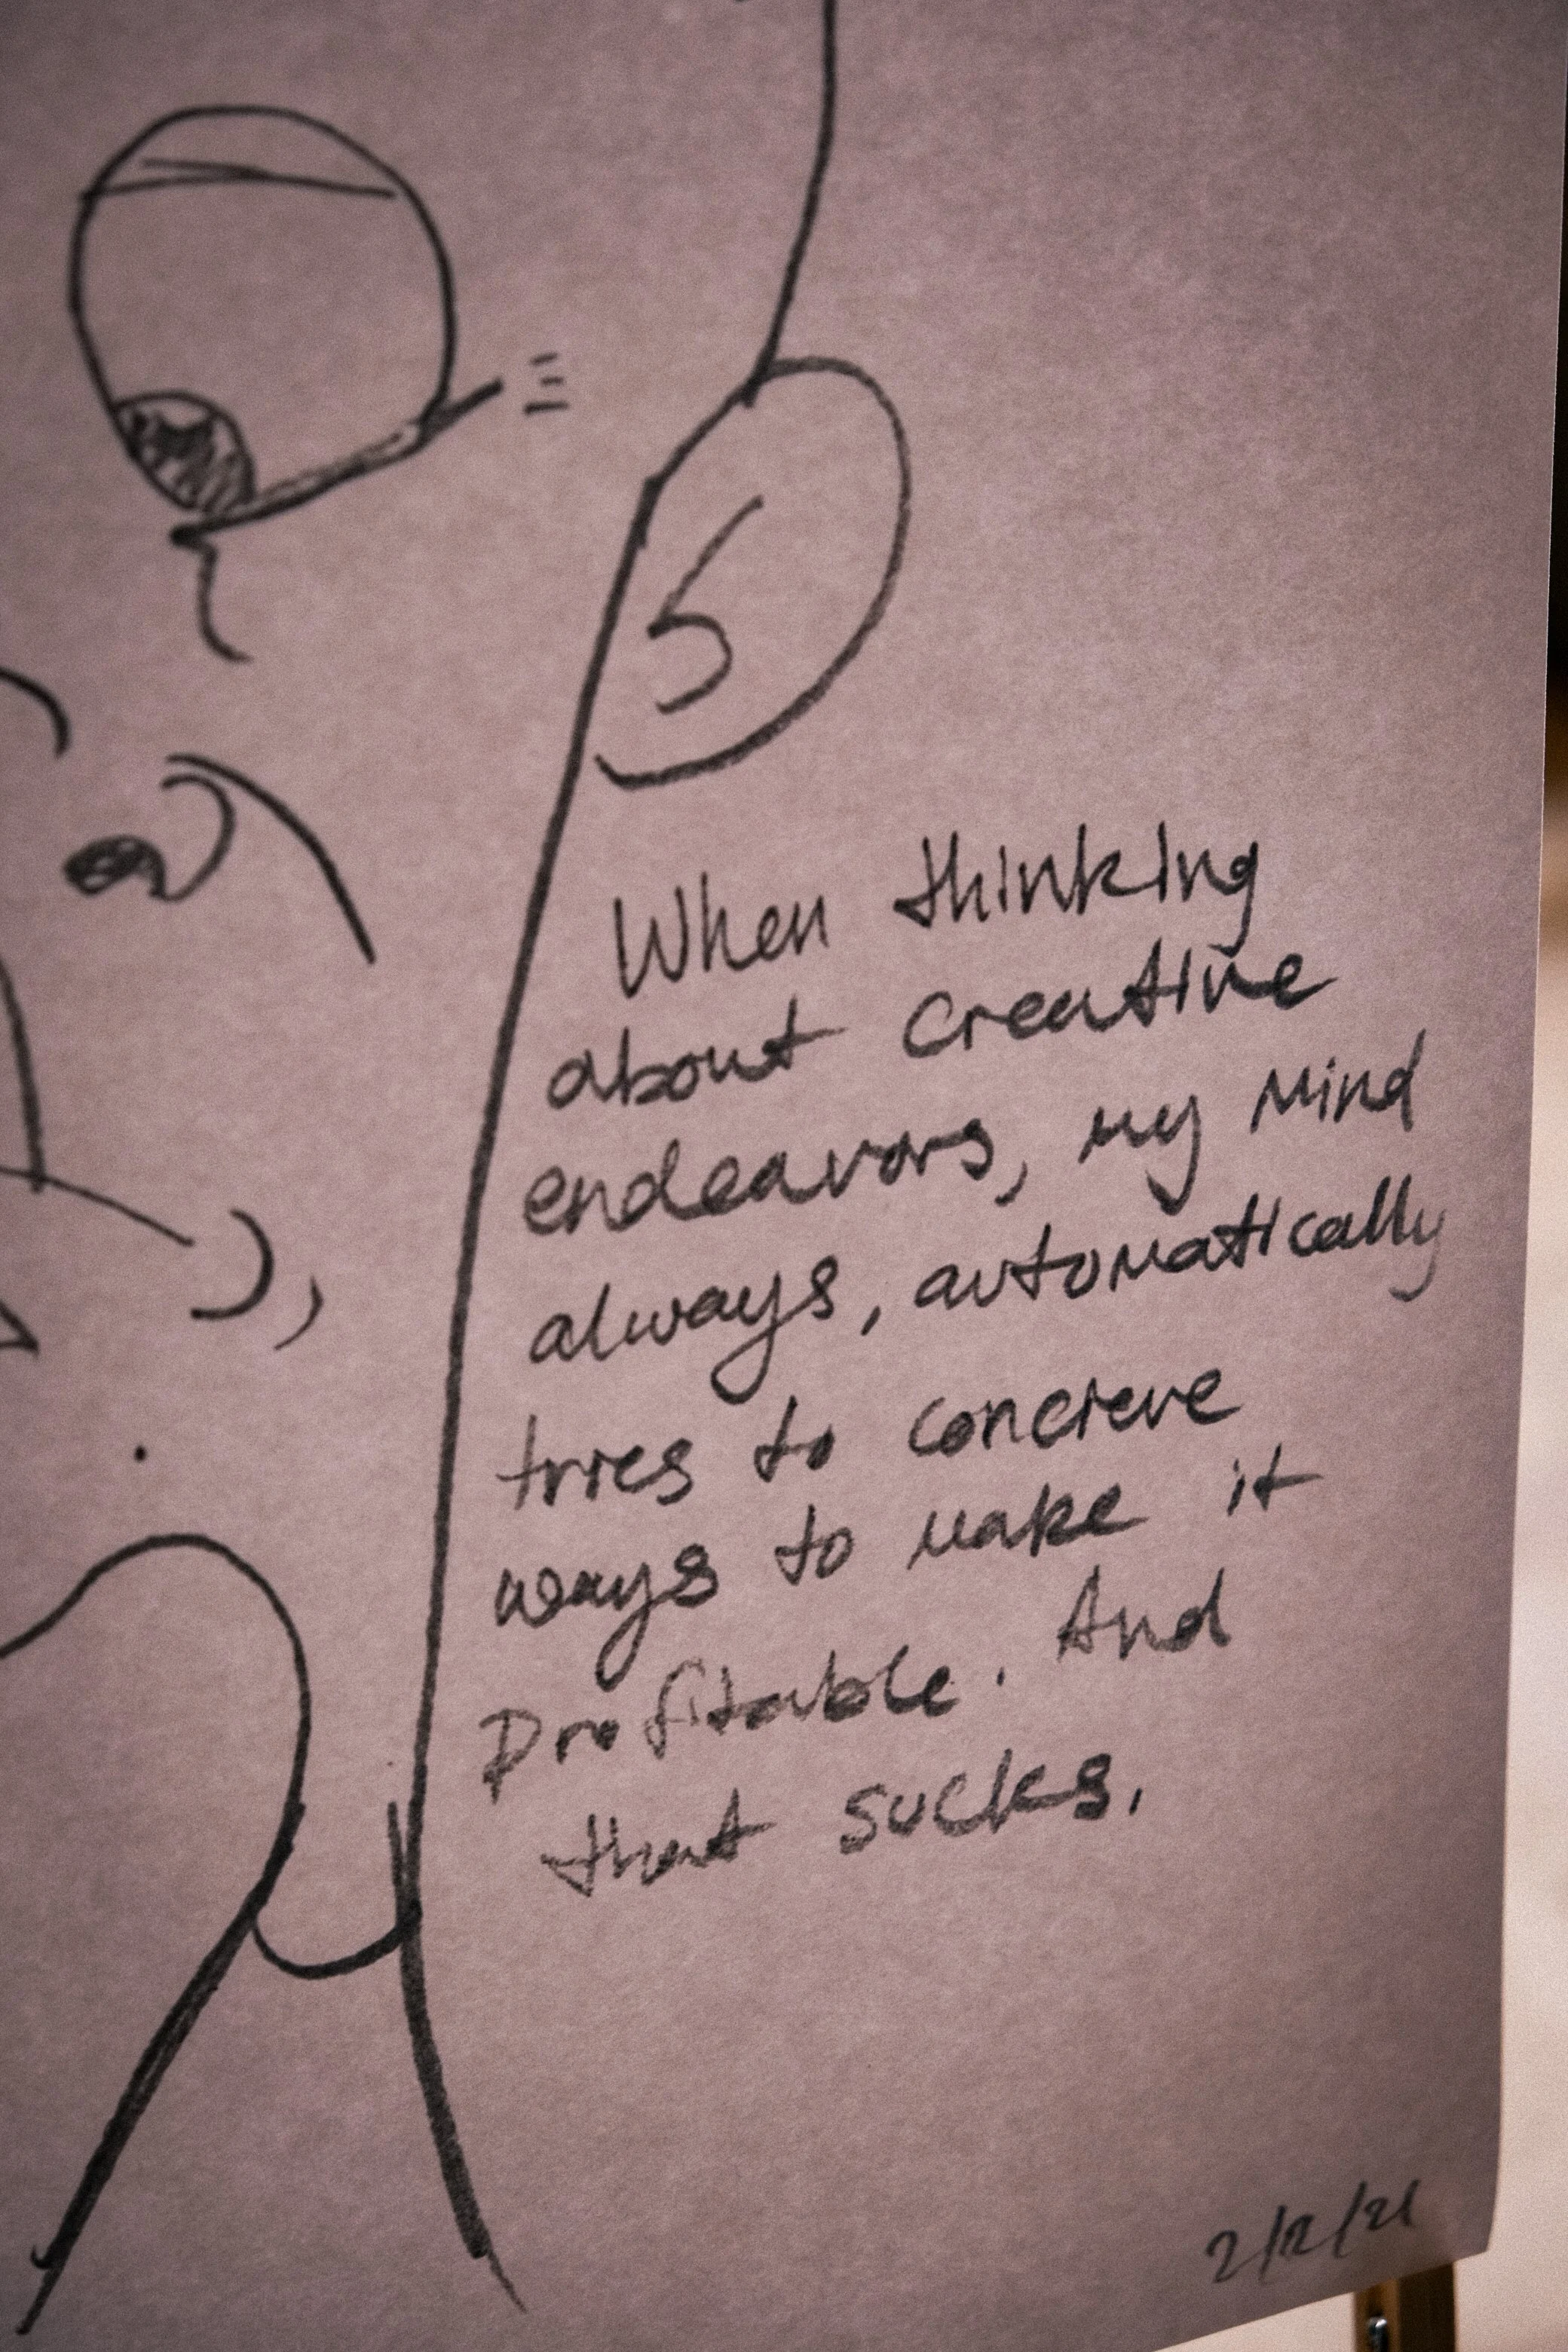 When thinking
about creative
endeavors, my mind
always, automatically
tries to concieve
ways to make it
Profitable. And
that sucks.
2/12/21